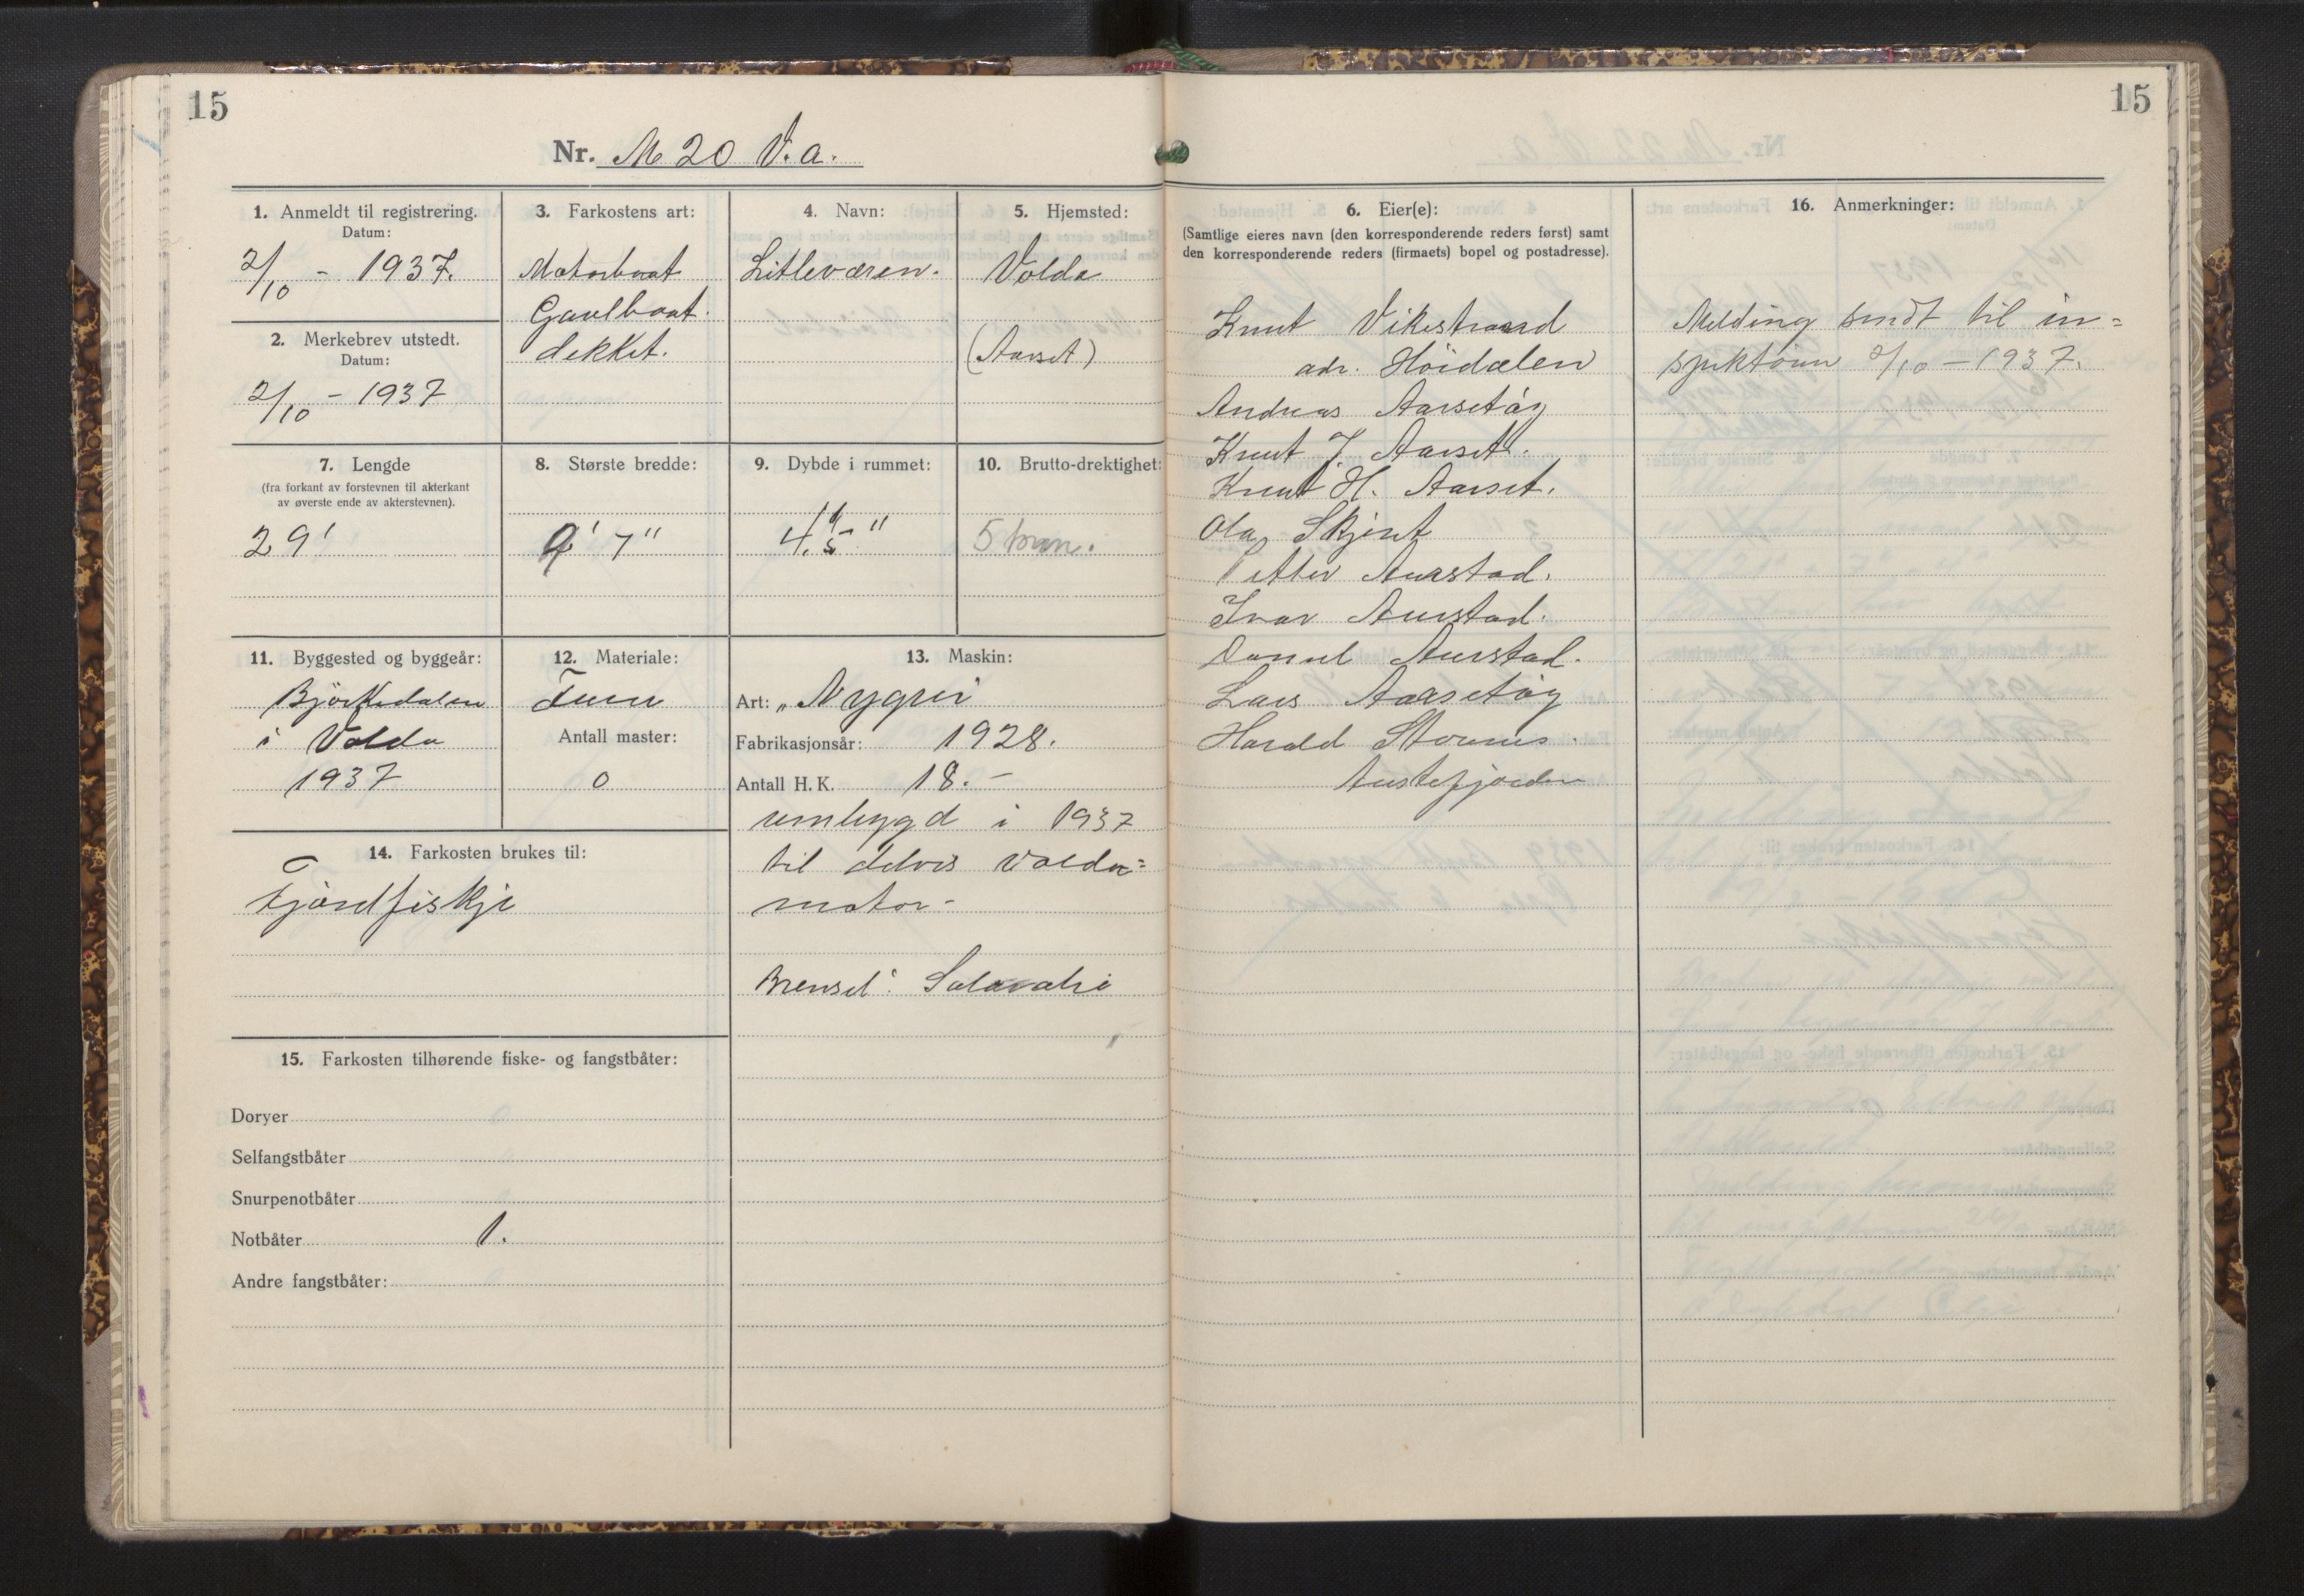 15
15
Nr. M 20 V.a.
1. Anmeldt til registrering.
Datum:
2/10 - 1937.
2. Merkebrev utstedt.
Datum:
2/10 - 1937
3. Farkostens art:
Motorbaat
Gavlbaat.
dekket.
4. Navn:
Litleværen.
5. Hjemsted:
Volda
(Aarset)
7. Lengde
(fra forkant av forstevnen til akterkant
av øverste ende av akterstevnen).
29'
8. Største bredde:
9' 7"
9. Dybde i rummet:
4' 5"
10. Brutto-drektighet:
5 tonn.
11. Byggested og byggeår:
Björkedalen
i Volda
1937
12. Materiale:
Furu
Antall master:
0
13. Maskin:
Art: "Nygrei
Fabrikasjonsår: 1928.
Antall H. K. 18.-
umbygd i 1937
til delvis Volda=
motor-
Brensel: Solarolje
14. Farkosten brukes til:
Fjordfiskje
15. Farkosten tilhørende fiske- og fangstbåter:
Doryer
Selfangstbåter
Snurpenotbåter
Notbåter 1.
Andre fangstbåter:
6. Eier(e):
(Samtlige eieres navn (den korresponderende reders først) samt
den korresponderende reders (firmaets) bopel og postadresse).
Knut Vikestrand
adr. Höidalen
Andreas Aarsetöy
Knut J. Aarset.
Knut H. Aarset.
Ola Skjeret
Petter Aurstad.
Ivar Aurstad.
Daniel Aurstad.
Lars Aarsetöy
Harald
Austefjorden
16. Anmerkninger:
Melding sendt til in=
spektören 2/10 - 1937.